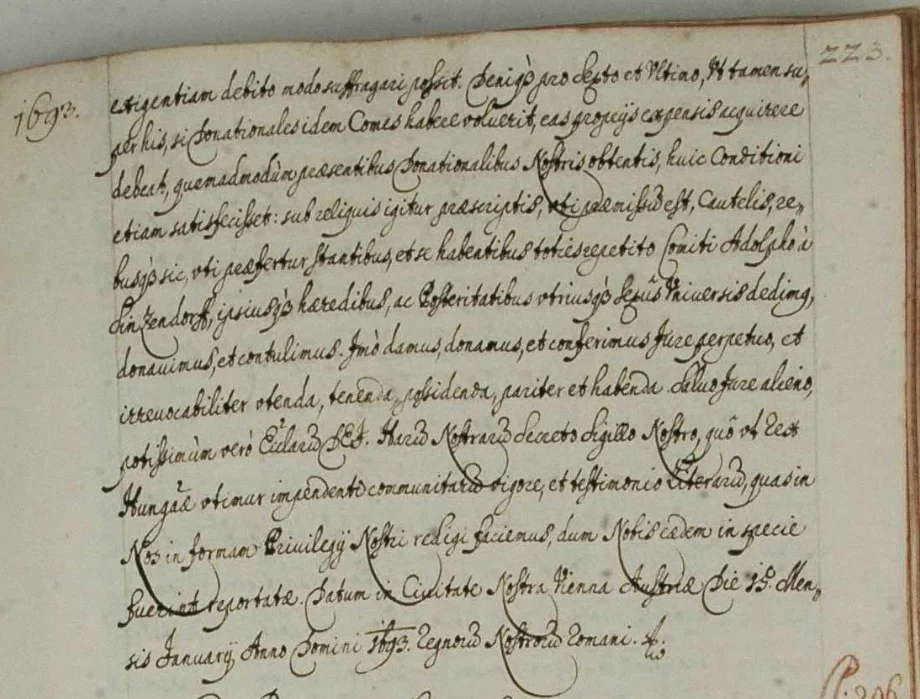 223.
1693.
exigentiam debito modo suffragari possit. Deniq3 pro Sexto et Ultimo, Ut tamen su„
per his, si Donationales idem Comes habere voluerit, eas proprijs expensis acquirere
debeat, quemadmodùm præsentibus Donationalibus Nostris obtentis, huic Conditioni
etiam satisfecisset: sub reliquis igitur præscriptis, uti præmissũ est, Cautelis, re„
busq3 sic, uti præfertur stantibus, et se habentibus toties repetito Comiti Adolpho à
Sinzendorff, ipsiusq3 hæredibus, ac Posteritatibus utriusq3 Sexûs Universis dedimq,
donavimus, et contulimus. Imò damus, donamus, et conferimus Jure perpetuo, et
irrevocabiliter utenda, tenenda, possidenda, pariter et habenda. Salvo Jure alieno,
potissimùm verò Ecclarũ DEI. Harũ Nostrarũ Secreto Sigillo Nostro, quõ ut Rex
Hungãæ utimur impendenti communitarũ vigore, et testimonio Literarũ, quas in
Nos in formam Privilegij Nostri redigi faciemus, dum Nobis eædem in specie
fuerint reportatæ. Datum in Civitate Nostra Vienna Austriæ Die 15. Men„
sis Januarij, Anno Domini 1693. Regnorũ Nostrorũ Romani.